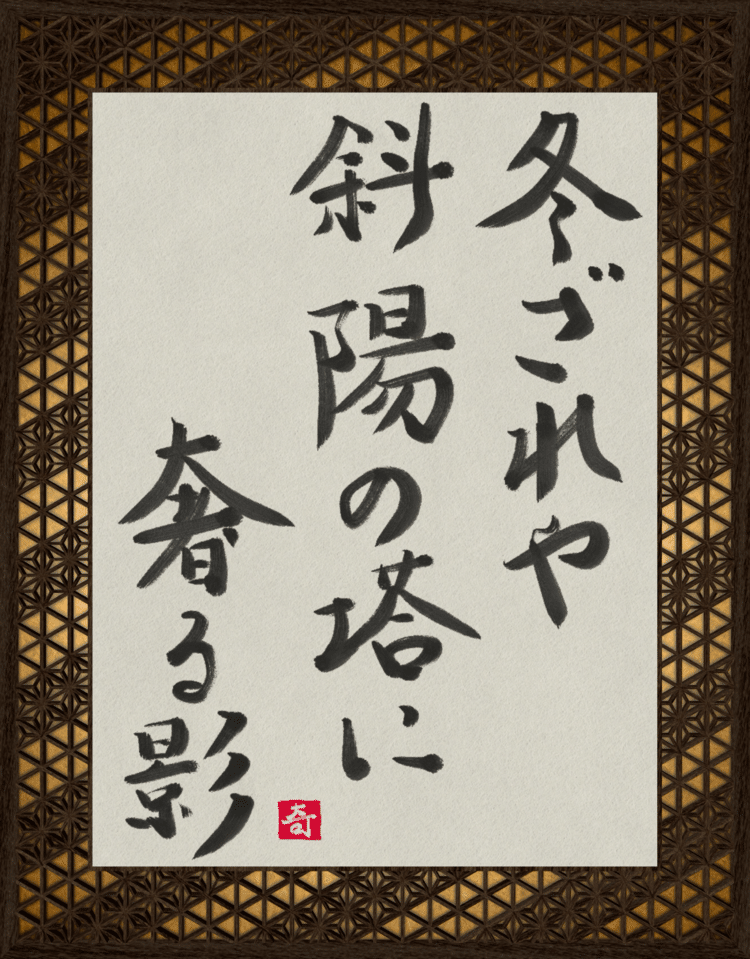 冬ざれや
斜陽の塔に
奢る影
奇